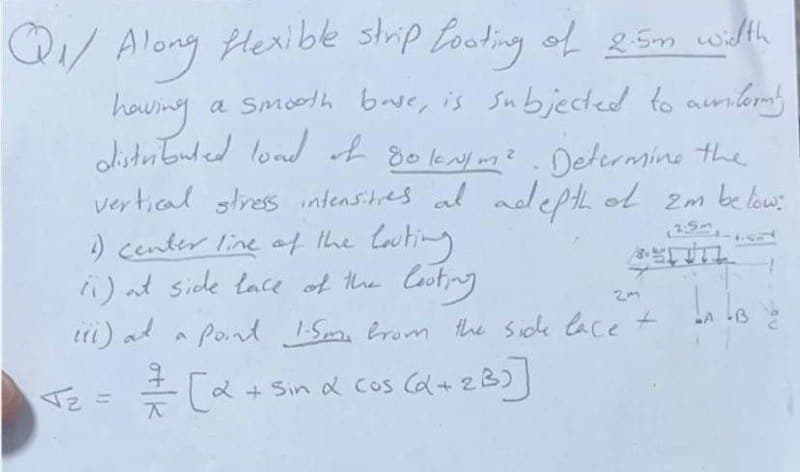 Q1/ Along flexible strip footing of 2.5m width
having a smooth base, is subjected to auniformly
distributed load of 80 kN/m². Determine the
vertical stress intensitres at adepth of 2m below:
i) center line of the footing
2.5m 1.5m
80
ii) at side face of the footing
2m
iii) at a point 1.5m from the side face
A B C
σz = q/π [α + sin α cos (α + 2β)]